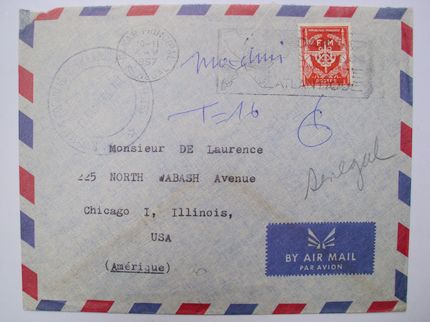 DAKAR PRINCIPAL
1957
F M
T=16
Monsieur DE Laurence
225 NORTH WABASH Avenue
Chicago I, Illinois,
USA
(Amérique)
Senegal
BY AIR MAIL
PAR AVION